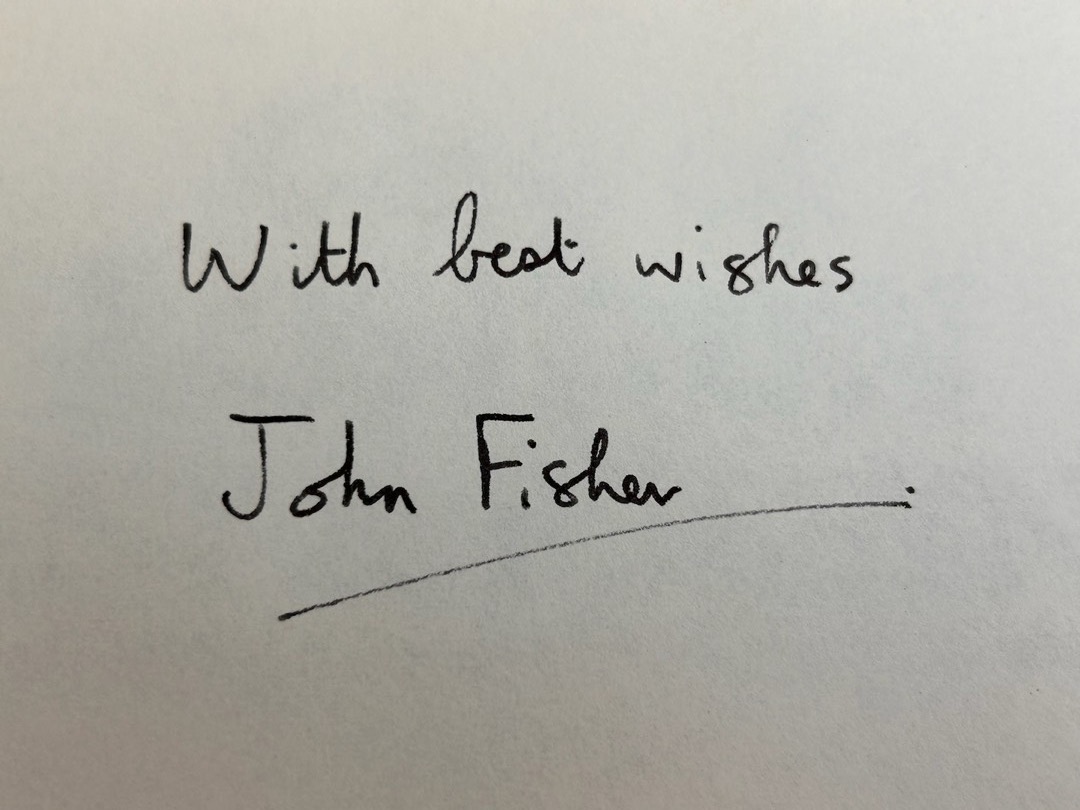 With best wishes
John Fisher